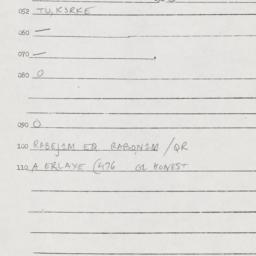 052 TU, KSRKE
060 —
070 —
080 O
090 O
100 RABEJIM EQ RABONIM / QR
110 A ERLAYE (476 G2 HONEST